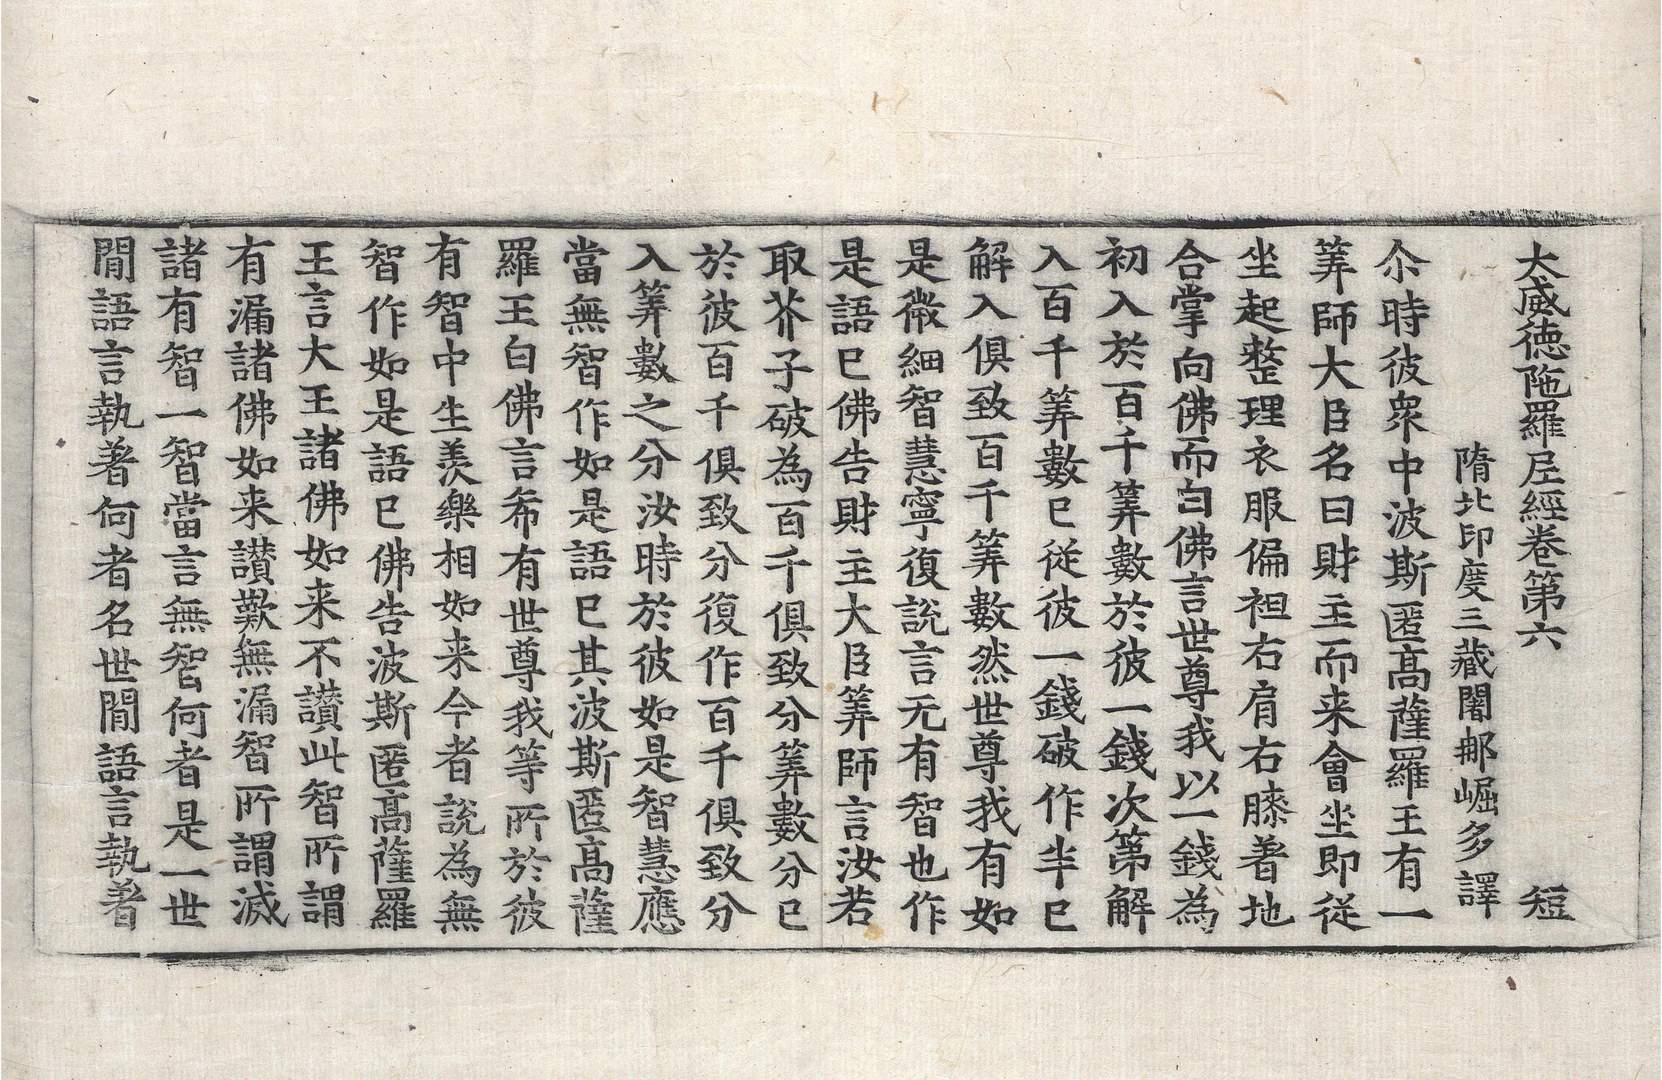 大威德陁羅尼經卷第六 短
隋北印度三藏闍那崛多譯
尒時彼衆中波斯匿髙薩羅王有一
筭師大臣名曰財主而来會坐即從
坐起整理衣服偏袒右肩右膝著地
合掌向佛而白佛言世尊我以一錢為
初入於百千筭數於彼一錢次第解
入百千筭數已從彼一錢破作半已
解入俱致百千筭數然世尊我有如
是微細智慧寧復說言无有智也作
是語已佛告財主大臣筭師言汝若
取芥子破為百千俱致分筭數分已
於彼百千俱致分復作百千俱致分
入筭數之分汝時於彼如是智慧應
當無智作如是語已其波斯匿髙薩
羅王白佛言希有世尊我等所於彼
有智中生羨樂相如来今者說為無
智作如是語已佛告波斯匿髙薩羅
王言大王諸佛如来不讃此智所謂
有漏諸佛如来讃歎無漏智所謂滅
諸有智一智當言無智何者是一世
閒語言執著何者名世閒語言執著